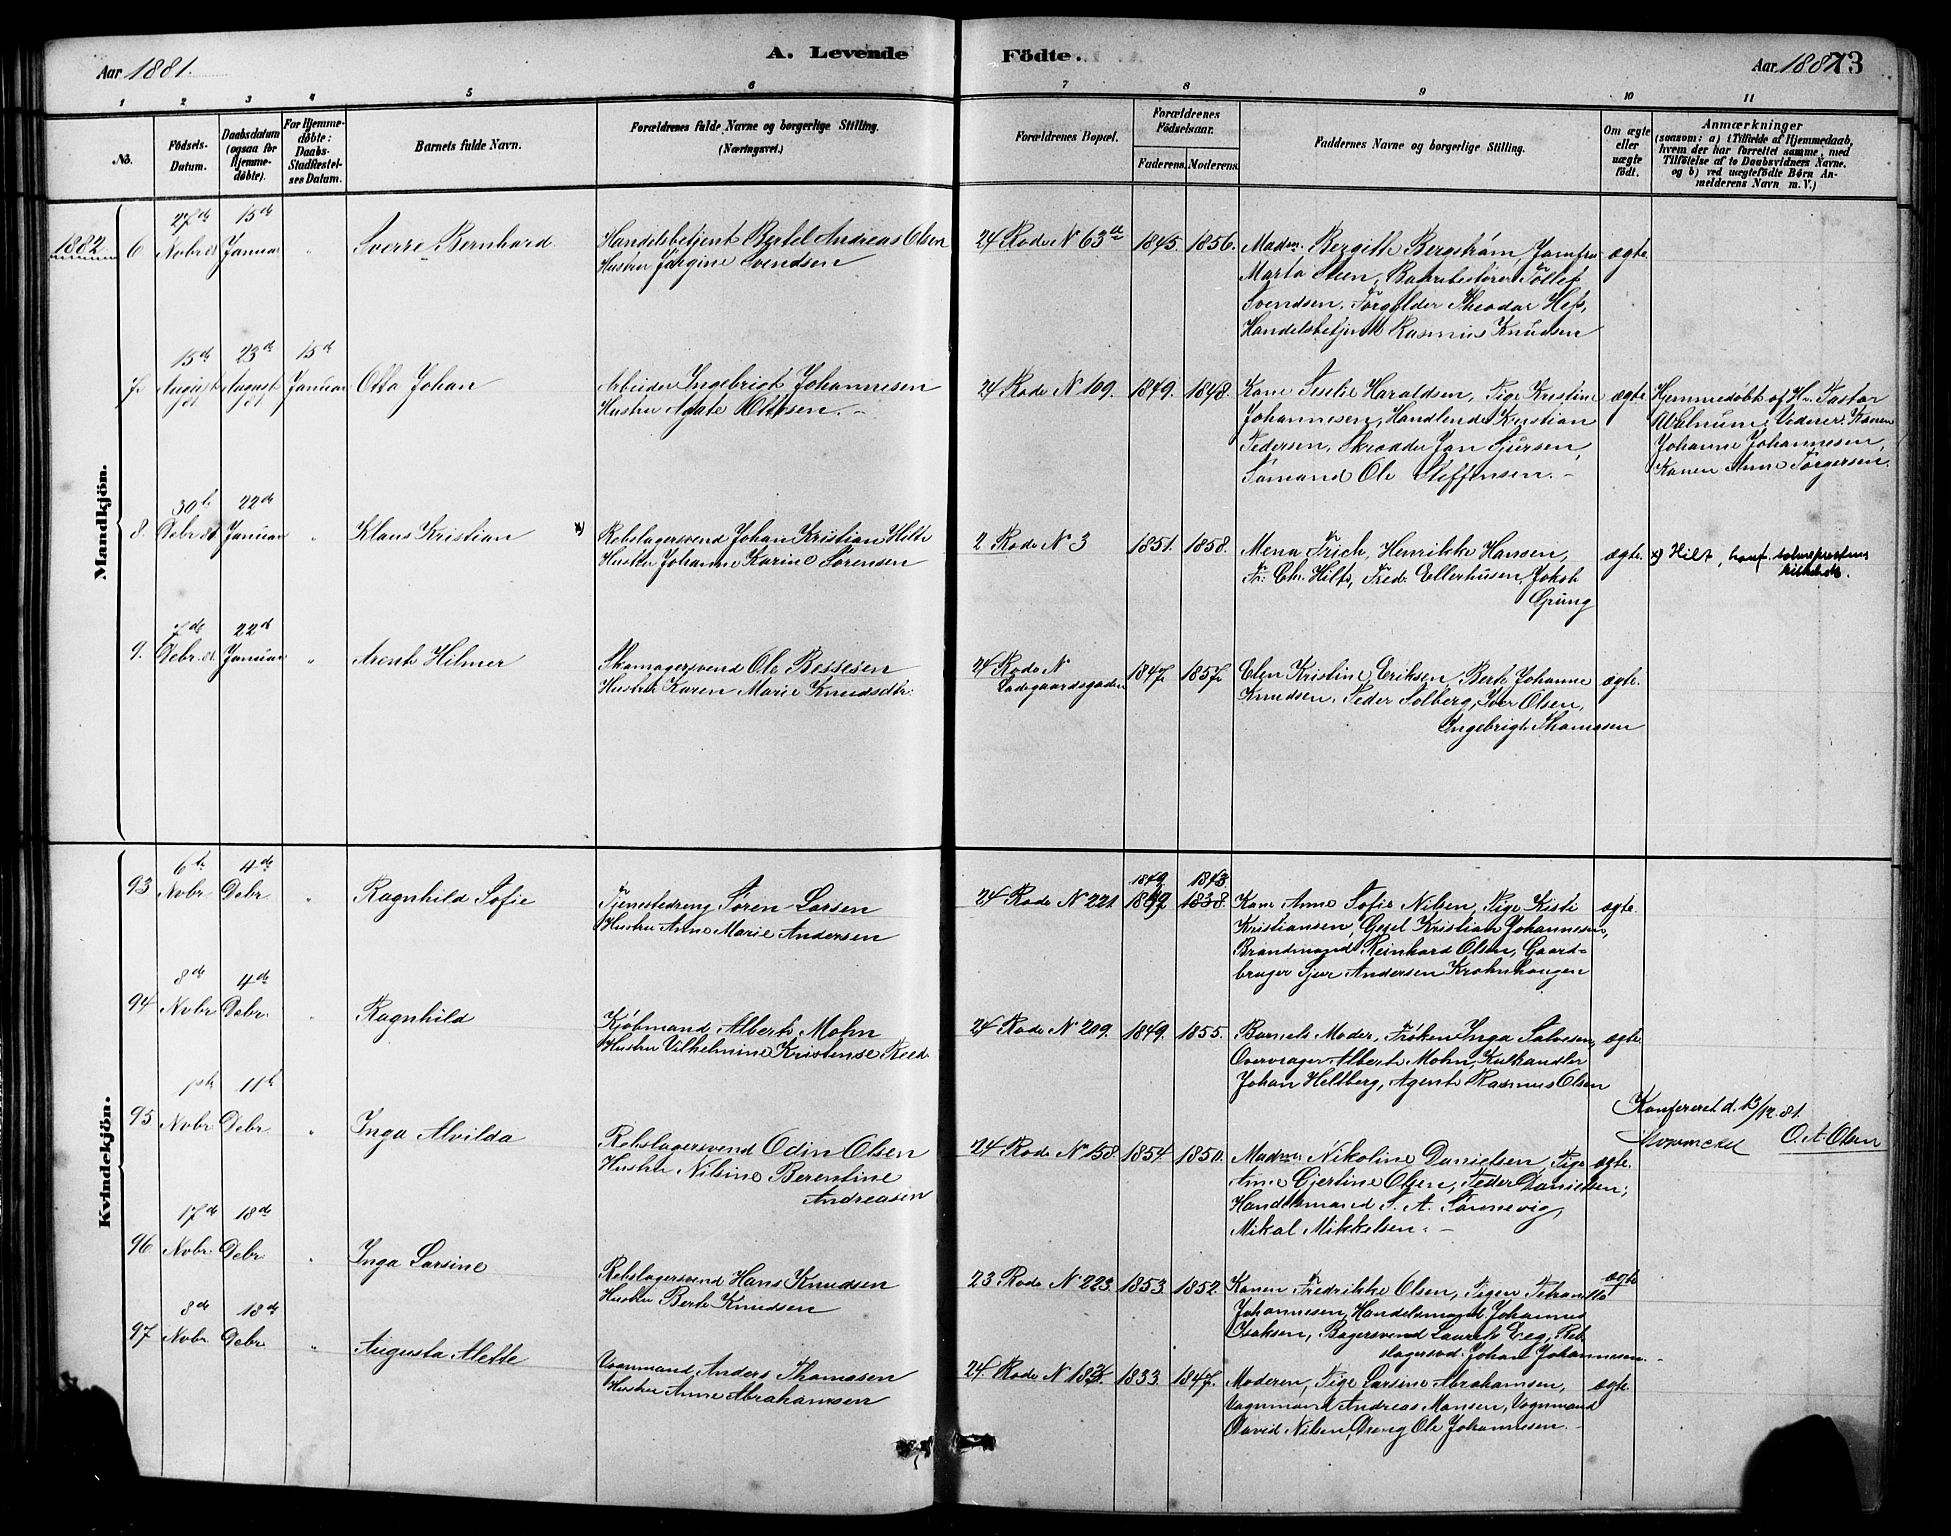 Aar 1881.
A. Levende
Födte.
Aar 1881
73
1 2 3 4 5 6 7 8 9 10 11
No.
Fødsels-
Datum.
Daabsdatum
(ogsaa for
Hjemme-
døbte).
For Hjemme-
døbte:
Daabs-
Stadfæstel-
ses Datum.
Barnets fulde Navn.
Forældrenes fulde Navne og borgerlige Stilling.
(Næringsvei.)
Forældrenes Bopæl.
Forældrenes
Födselsaar.
Faderens. Moderens.
Faddernes Navne og borgerlige Stilling.
Om ægte
eller
uægte
født.
Anmærkninger
(saasom: a) i Tilfælde af Hjemmedaab,
hvem der har forrettet samme, med
Tilföielse af to Daabsvidners Navne.
og b) ved uægtefödte Börn An-
melderens Navn m. V.)
Mandkjön.
1882
27de 15de
6 Novbr 81 Januar " Sverre Bernhard
Handelsbetjent Bertel Andreas Olsen
Hustru Jørgine Svendsen
24 Rode N 63a 1845. 1856.
Madm. Bergith Bergstrøm, Jomfru
Marta Steen, Tollef
Svendsen, Theodor Hess,
Handelsbetjent Rasmus Knudsen
ægte
15de 23de 15de
7. August 81 August 81 Januar Otto Johan
Arbeider Ingebrigt Johannesen
Hustru Agate Ottesen. -
24 Rode N 109. 1849. 1848.
Kone Haraldsen, Pige Kristine
Johannesen, Handlende Kristian
Pedersen, Skrædder Jan Sjursen,
Sømand Ole Steffensen. -
ægte
Hjemmedøbt af Hr. Pastor
Walnum, Vidner: Konen
Johanne Johannesen,
Konen Anne Torgersen.
30te 22de
8. Debr 81 Januar " Klaus Kristian x)
Rebslagersvend Johan Kristian Hilt
Hustru Johanne Karine Sørensen
2 Rode N 3 1851. 1858.
Mena Frich, Henrikke Hansen,
Fr. Chr. Hilt, Fred. Ellerhusen, Jakob
Grung
ægte.
x) Hilt, konf. sogneprestens
kirkebok.
7de 22de
9. Debr. 81 Januar " Arent Hilmer
Skomagersvend Ole Bessesen
Hustru Karen Marie Knudsdtr.
24 Rode N
Ladegaardsgaden 1847 1857
Elen Kristine Eriksen, Berte Johanne
Knudsen, Peder Solberg, Iver Olsen,
Ingebrigt Thomassen
ægte.
Kvindekjön.
6te 4de 1849 1843
93 Novbr Debr " Ragnhild Sofie
Tjenestedreng Søren Larsen
Hustru Anne Marie Andersen
24 Rode N 221. 1838.
Kone Anne Sofie Nilsen, Pige Kisti
Kristiansen, Gesel Kristian Johannesen,
Brandmand Reinhard Olsen, Gaard-
bruger Sjur Andersen Krohnhaugen
ægte.
8de 4de
94 Novbr Debr. " Ragnhild
Kjøbmand Albert Mohn
Hustru Vilhelmine Kristense Reed
24 Rode N 209. 1849. 1855.
Barnets Moder, Frøken Inga Salvesen,
Overvrager Albert Mohn, Kulhandler
Johan Heltberg, Agent Rasmus Olsen
ægte.
1ste 11te
95 Novbr Debr. " Inga Alvilda
Rebslagersvend Odin Olsen
Hustru Nilsine Berentine
Andreasen
24 Rode N 158. 1854. 1850.
Madm. Nikoline Danielsen, Pige
Anne Gjertine Olsen, Peder Danielsen,
Handelsmand S. A. Sønnevig,
Mikal Mikkelsen. -
ægte.
Konfereret d. 13/12.81.
O. A. Olsen
17de 18de
96 Novbr. Debr. " Inga Larsine
Rebslagersvend Hans Knudsen
Hustru Berte Knudsen
23 Rode N 223. 1853. 1852.
Konen Fredrikke Olsen, Pigen Petranilla
Johannesen, Handelsmand Johannes
Isaksen, Bagersvend Laurits Eeg, Reb
slagersvd. Johan Johannesen.
ægte
8de 18de
97 Novbr. Debr. " Augusta Alette
Vognmand Anders Thomasen
Hustru Anne Abrahamsen
24. Rode N 1833. 1847.
Moderen, Pige Larsine Abrahamsen,
Vognmand Andreas Monsen, Vognmand
David Nilsen, Dreng Ole Johannesen. -
ægte.